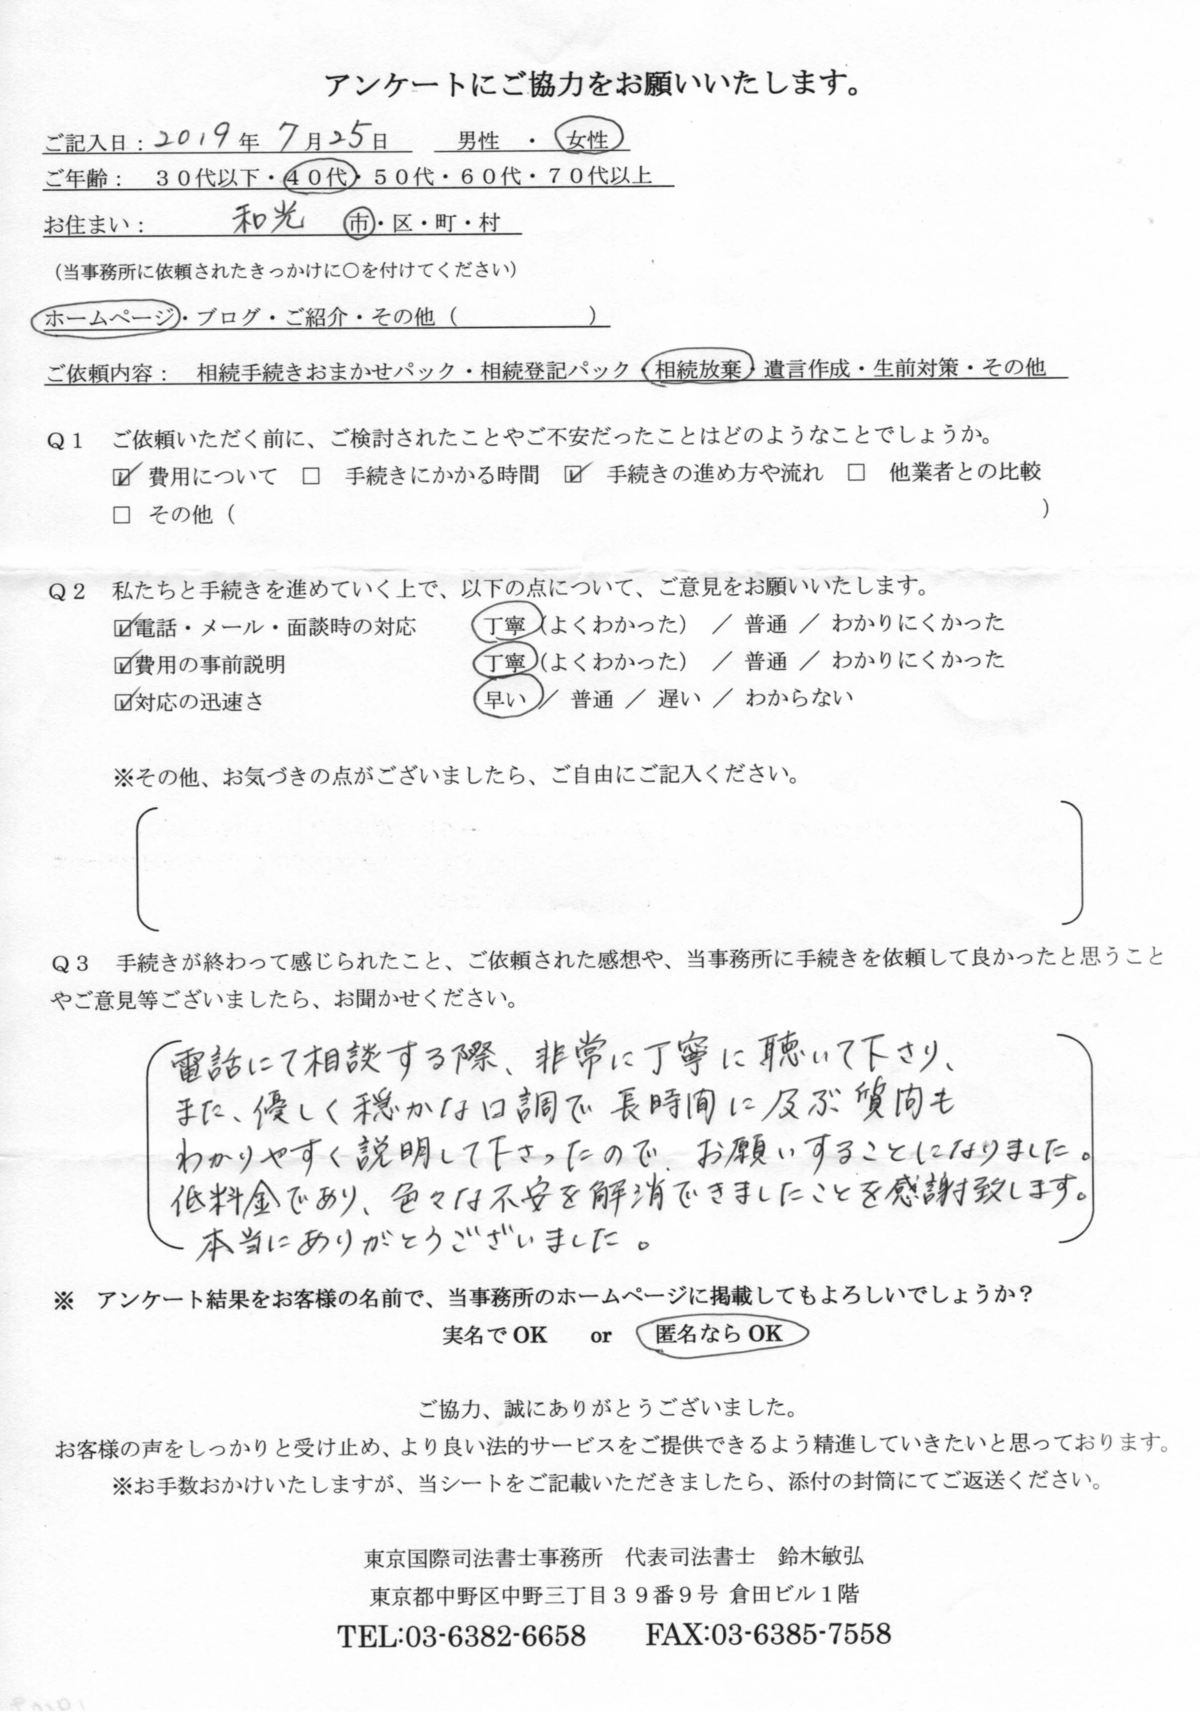 アンケートにご協力をお願いいたします。
ご記入日：2019年 7月25日　男性　・　女性
ご年齢：　３０代以下・４０代・５０代・６０代・７０代以上
お住まい：　和光　市・区・町・村
（当事務所に依頼されたきっかけに〇を付けてください）
ホームページ・ブログ・ご紹介・その他（　　　　　　）
ご依頼内容：　相続手続きおまかせパック・相続登記パック・相続放棄・遺言作成・生前対策・その他
Ｑ１　ご依頼いただく前に、ご検討されたことやご不安だったことはどのようなことでしょうか。
☑ 費用について　□　手続きにかかる時間　☑　手続きの進め方や流れ　□　他業者との比較
□ その他（　　　　　　　　　　　　　　　　　　　　）
Ｑ２　私たちと手続きを進めていく上で、以下の点について、ご意見をお願いいたします。
☑電話・メール・面談時の対応　　丁寧（よくわかった）　／ 普通 ／ わかりにくかった
☑費用の事前説明　　丁寧（よくわかった）　／ 普通 ／ わかりにくかった
☑対応の迅速さ　　早い ／　普通 ／　遅い ／　わからない
※その他、お気づきの点がございましたら、ご自由にご記入ください。
Ｑ３　手続きが終わって感じられたこと、ご依頼された感想や、当事務所に手続きを依頼して良かったと思うこと
やご意見等ございましたら、お聞かせください。
電話にて相談する際、非常に丁寧に聴いて下さり、
また、優しく穏かな口調で長時間に及ぶ質問も
わかりやすく説明して下さったので、お願いすることになりました。
低料金であり、色々な不安を解消できましたことを感謝致します。
本当にありがとうございました。
※　アンケート結果をお客様の名前で、当事務所のホームページに掲載してもよろしいでしょうか？
実名でOK　　or　　匿名ならOK
ご協力、誠にありがとうございました。
お客様の声をしっかりと受け止め、より良い法的サービスをご提供できるよう精進していきたいと思っております。
※お手数おかけいたしますが、当シートをご記載いただきましたら、添付の封筒にてご返送ください。
東京国際司法書士事務所　代表司法書士　鈴木敏弘
東京都中野区中野三丁目３９番９号 倉田ビル１階
TEL:03-6382-6658　　FAX:03-6385-7558